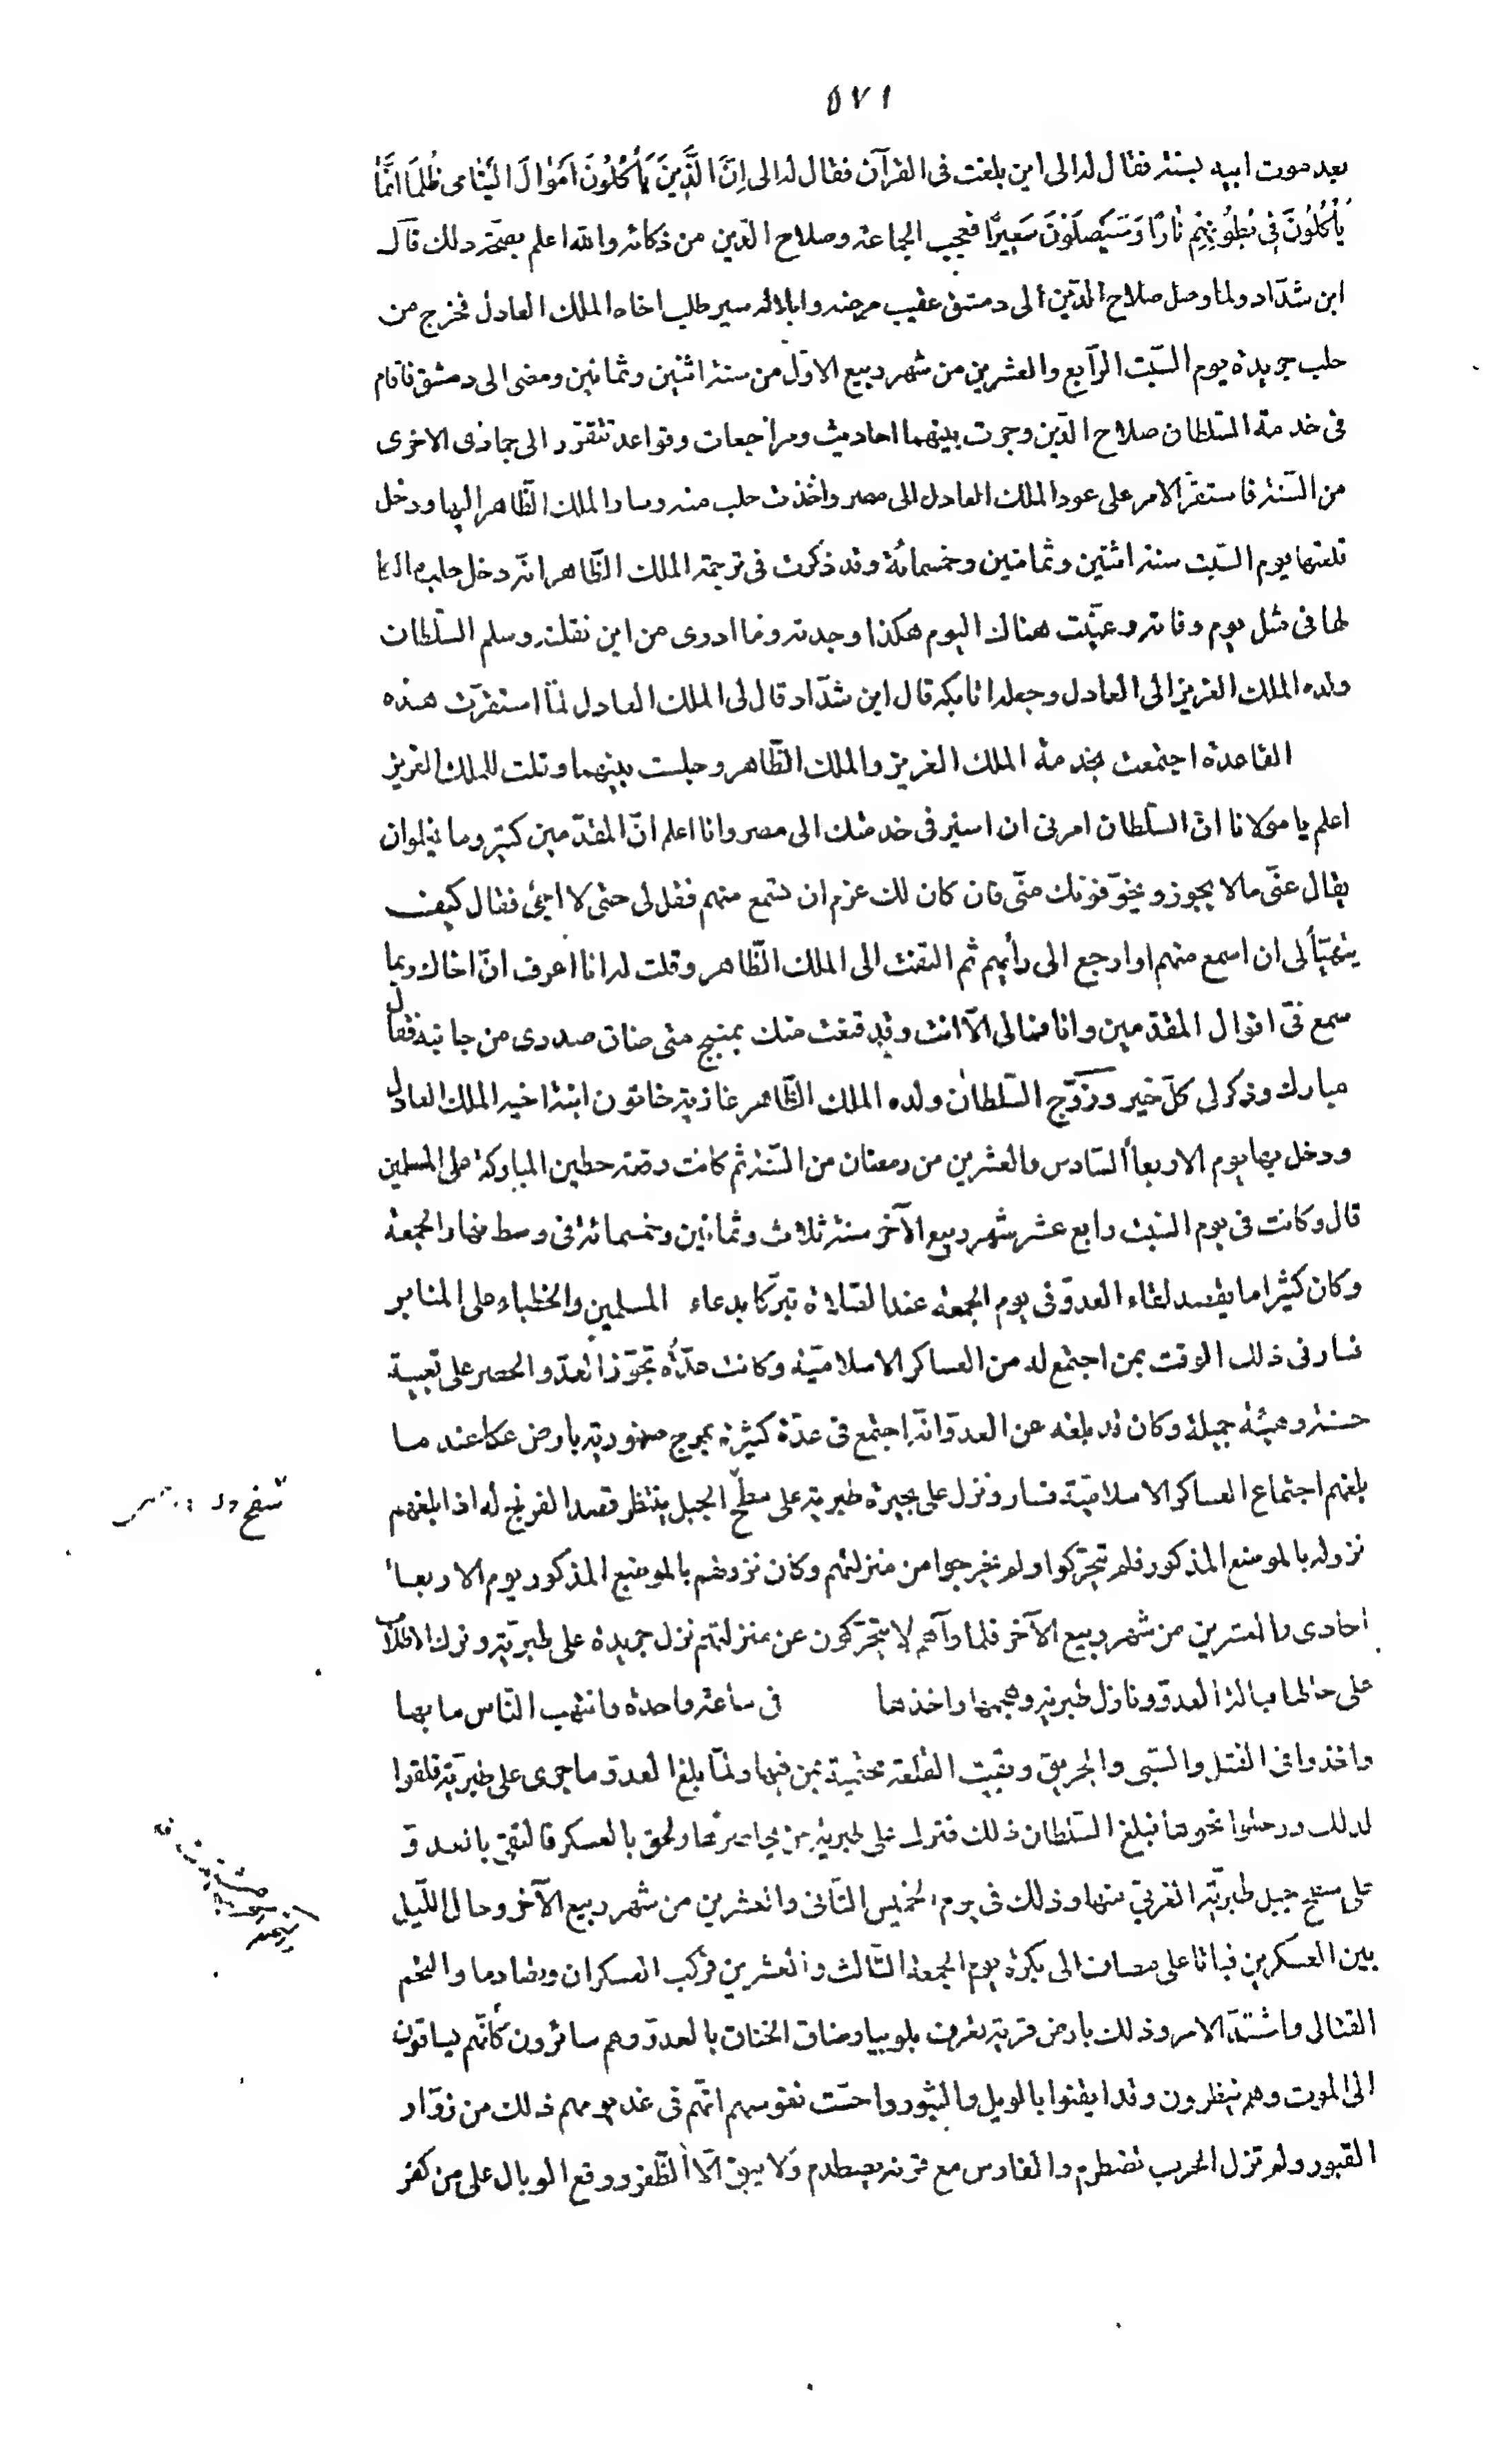 ٥٧١
بعد موت ابيه بسنة فقال له الى اين بلغت فى القرآن فقال له الى اِنَّ الَّذِينَ يَأْكُلُونَ اَمْوَالَ اليَتَامى ظُلماً انَّمَا
يَأْكُلُونَ فِى بُطُونِهِم نَارًا وَسَيَصْلَوْنَ سَعِيرًا فعجب الجماعة وصلاح الدّين من ذكائه والله اعلم بصحّة ذلك قال
ابن شدّاد ولما وصل صلاح الدّين الى دمشق عقيب مرضه وابلاله سير طلب اخاه الملك العادل فخرج من
حلب جريدة يوم السّبت الرّابع والعشرين من شهر ربيع الاوّل من سنة اثنين وثمانين ومضى الى دمشق فاقام
فى خدمة السّلطان صلاح الدّين وجرت بينهما احاديث ومراجعات وقواعد تتقرّر الى جماذى الاخرى
من السّنة فاستقرّ الامر على عود الملك العادل الى مصر واخذت حلب منه وسار الملك الظّاهر اليها ودخل
قلعتها يوم السّبت سنة اثنتين وثمانين وخمسمائة وقد ذكرت فى ترجمة الملك الظّاهر انّه دخل حلب مالكا
لها فى مثل يوم وفاته وعيّنت هناك اليوم هكذا وجدته وما ادرى من اين نقلته وسلم السّلطان
ولده الملك العزيز الى العادل وجعله اتابكه قال ابن شدّاد قال لى الملك العادل لمّا استقرّت هذه
القاعدة اجتمعت بخدمة الملك العزيز والملك الظّاهر وجلست بينهما وقلت للملك العزيز
اعلم يا مولانا انّ السّلطان امرنى ان اسير فى خدمتك الى مصر وانا اعلم انّ المقدّمين كثير وما يخلوان
يقال عنّى مالا يجوز ويخوّفونك منّى فان كان لك عزم ان تسمع منهم فقل لى حتى لا اجئ فقال كيف
يتهيّأ لى ان اسمع منهم او ارجع الى رأيهم ثم التفت الى الملك الظّاهر وقلت له انا اعرف انّ اخاك ربما
سمع فىّ اقوال المقدّمين وانا فمالى الّا انت وقد قنعت منك بمنبج متى ضاق صدرى من جانبه فقال
مبارك وذكر لى كلّ خير وزوّج السّلطان ولده الملك الظّاهر غازية خاتون ابنة اخيه الملك العادل
ودخل بها يوم الاربعاأ السّادس والعشرين من رمضان من السّنة ثم كانت وقعة حطين المباركة على المسلمين
قال وكانت فى يوم السّبت رابع عشر شهر ربيع الآخر سنة ثلاث وثمانين وخمسمائة فى وسط نهار الجمعة
وكان كثيرا ما يقصد لقاء العدوّ فى يوم الجمعة عند الصّلاة تبرّكا بدعاء المسلمين والخطباء على المنابر
فسار فى ذلك الوقت بمن اجتمع له من العساكر الاسلاميّة وكانت عدّة تجوّز العدّ والحصر على تعبية
حسنة وهيئة جميلة وكان قد بلغه عن العدوّ انّه اجتمع فى عدّة كثيرة بمرج صفورية بارض عكا عند ما
بلغهم اجتماع العساكر الاسلاميّة فسار ونزل على بحيرة طبرية على سطح الجبل ينتظر قصد الفرنج له اذا بلغهم
نزوله بالموضع المذكور فلم يتحرّكوا ولم يخرجوا من منزلتهم وكان نزولهم بالموضع المذكور يوم الاربعأ
الحادى والعشرين من شهر ربيع الآخر فلما رآهم لا يتحرّكون عن منزلتهم نزل جريدة على طبريّة وترك الاطلاب
على حالها قبالة العدوّ ونازل طبرية وهجمها واخذها فى ساعة واحدة وانتهب النّاس ما بها
واخذوا فى القتل والسّبى والحريق وبقيت القلعة محتمية بمن فيها ولمّا بلغ العدوّ ما جرى على طبريّة قلقوا
لذلك ورحلوا نحوها فبلغ السّلطان ذلك فترك على طبرية من يحاصرها ولحق بالعسكر فالتقى بالعدوّ
على سطح جبل طبريّة الغربىّ منها وذلك فى يوم الخميس الثّانى والعشرين من شهر ربيع الآخر وحال اللّيل
بين العسكرين فباتا على مصاف الى بكرة يوم الجمعة الثّالث والعشرين فركب العسكران وتصادما والتحم
القتال واشتدّ الامر وذلك بارض قرية تعرف بلوبيا وضاق الخناق بالعدوّ وهم سائرون كأنّهم يساقون
الى الموت وهم ينظرون وقد ايقنوا بالويل والثبور واحسّت نفوسهم انّهم فى غد يومهم ذلك من زوّار
القبور ولم تزل الحرب تضطرم والفارس مع قرنه يصطدم ولا يبق الّا الظّفر ووقع الوبال على من كفر